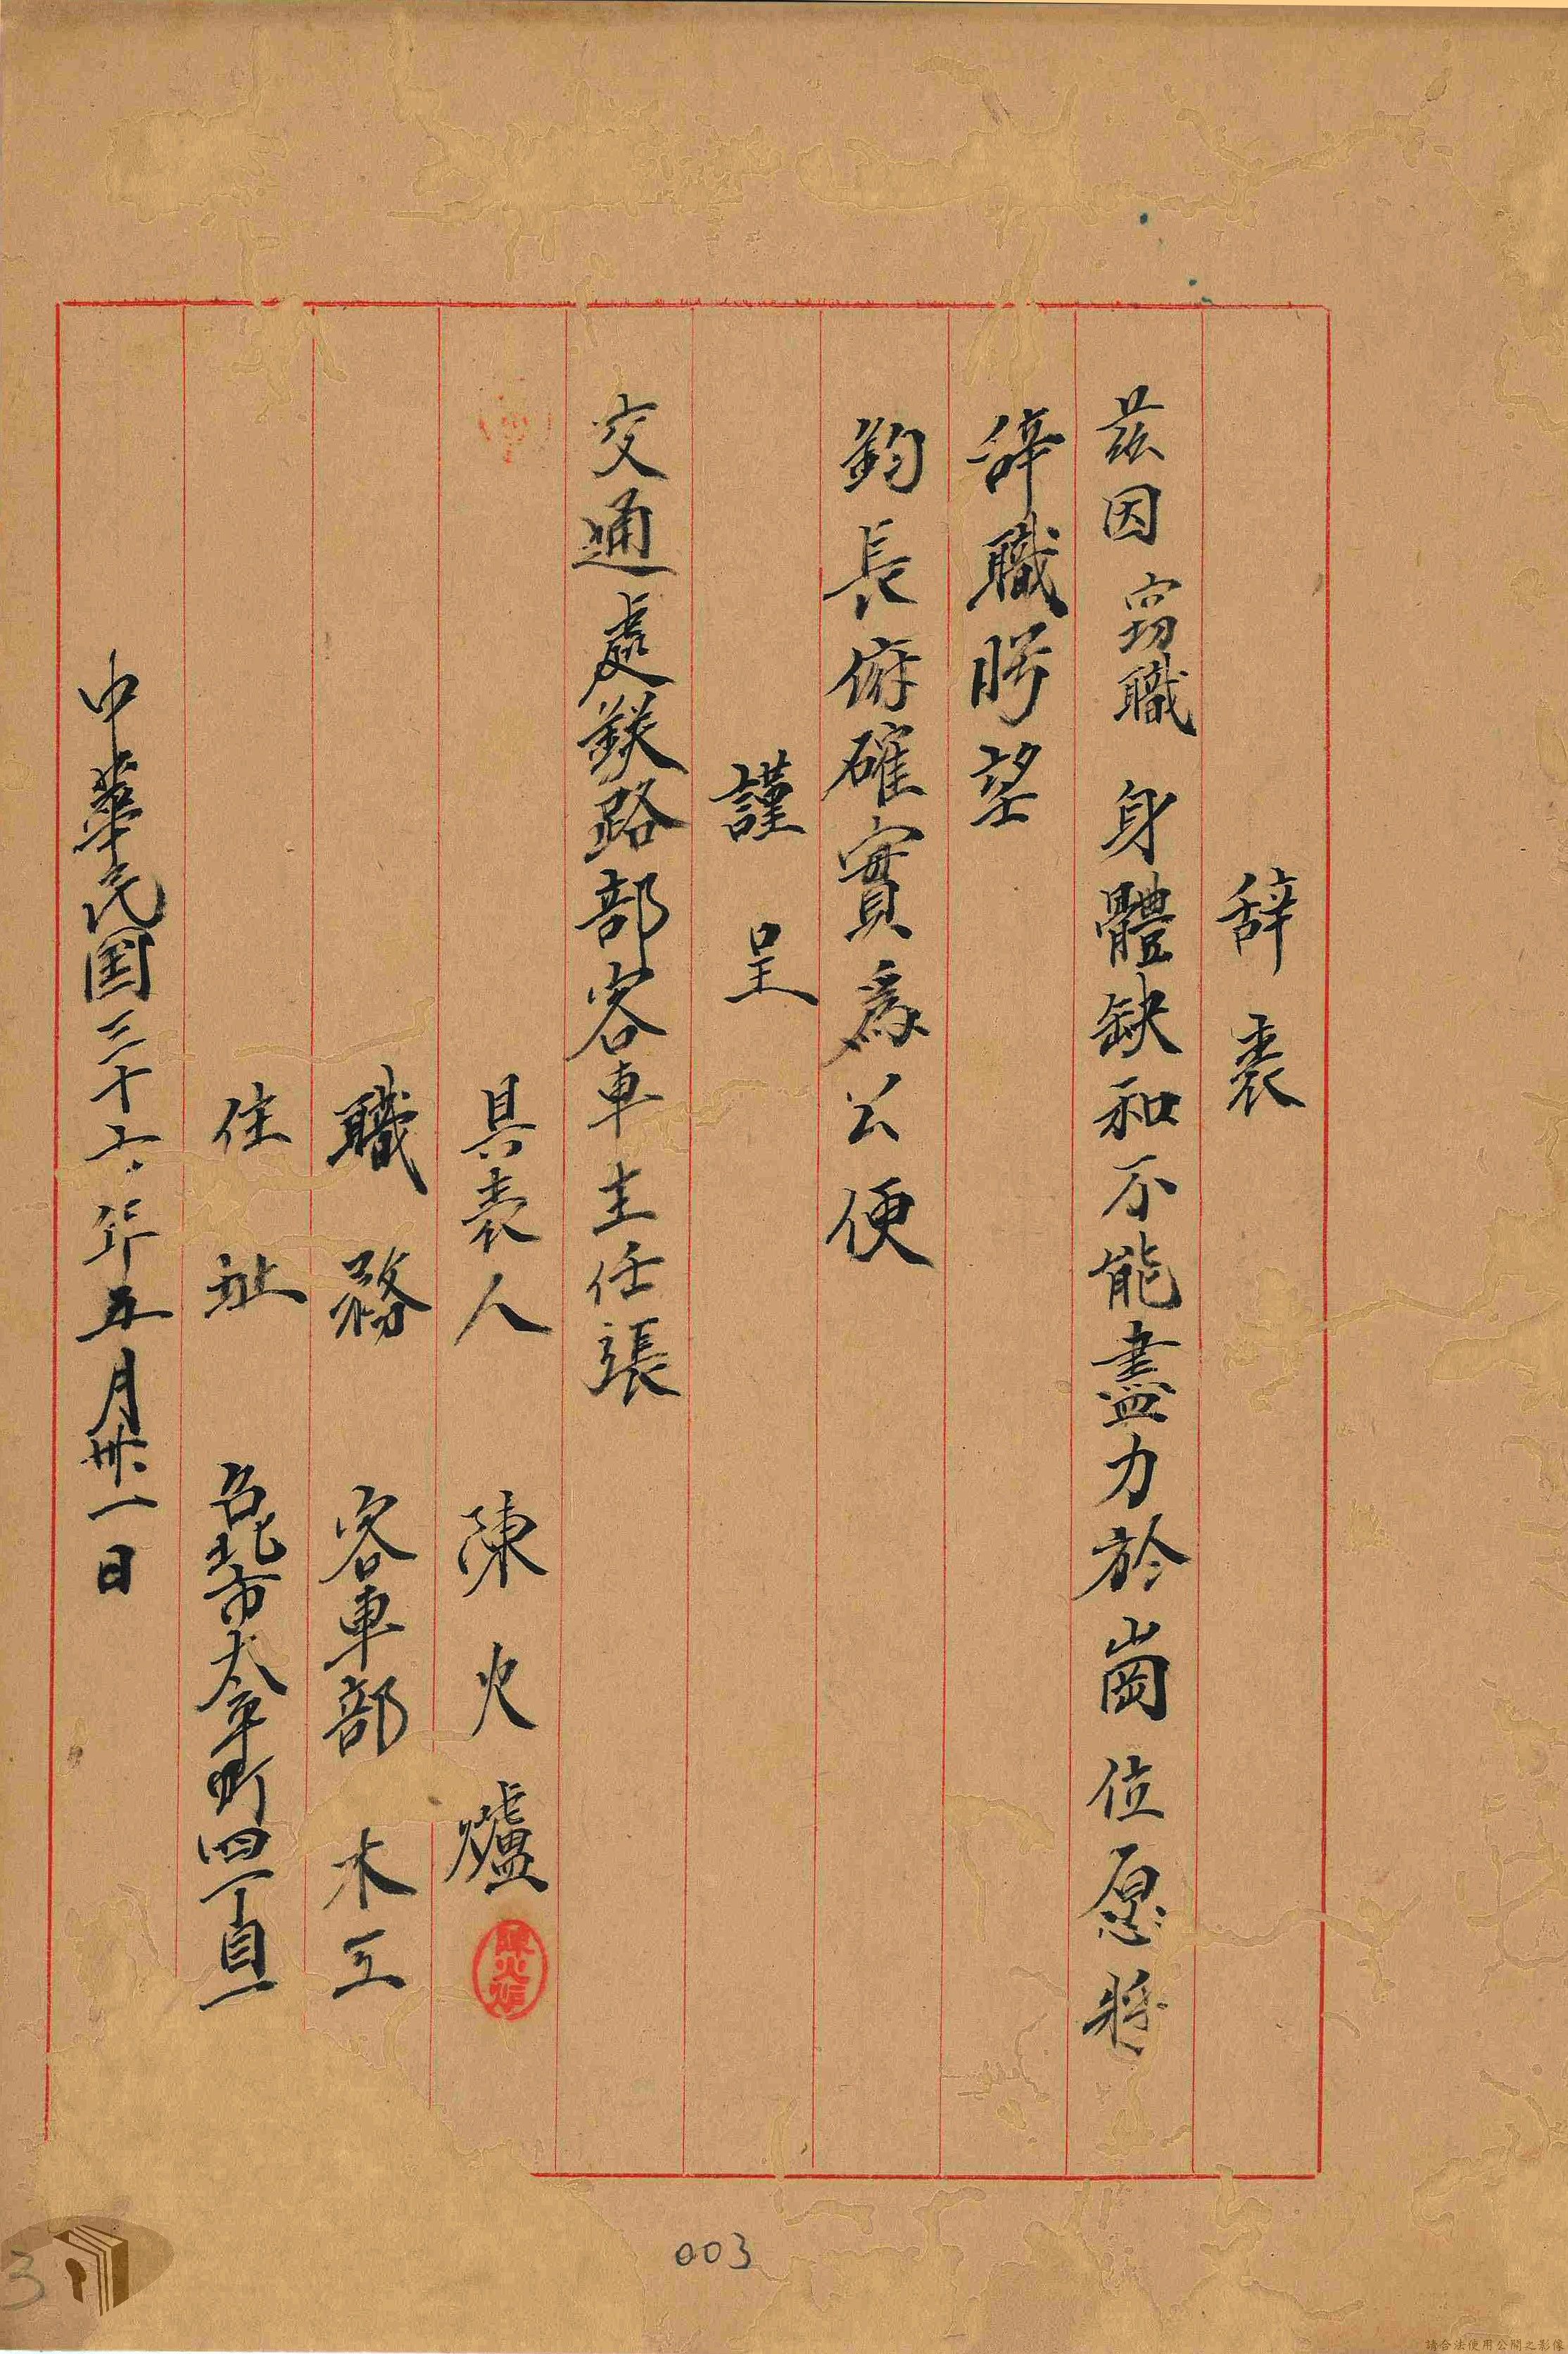 辞表
茲因竊職身體缺和不能盡力於崗位愿將
辞職盻望
鈞長俯確實為公便
謹呈
交通處鉄路部客車主任張
具表人 陳火爐
陳火炉
職務 客車部 木工
住址 台北市太平町四丁目一
中華民国三十六年五月卅一日
003
3
請合法使用公開之影像